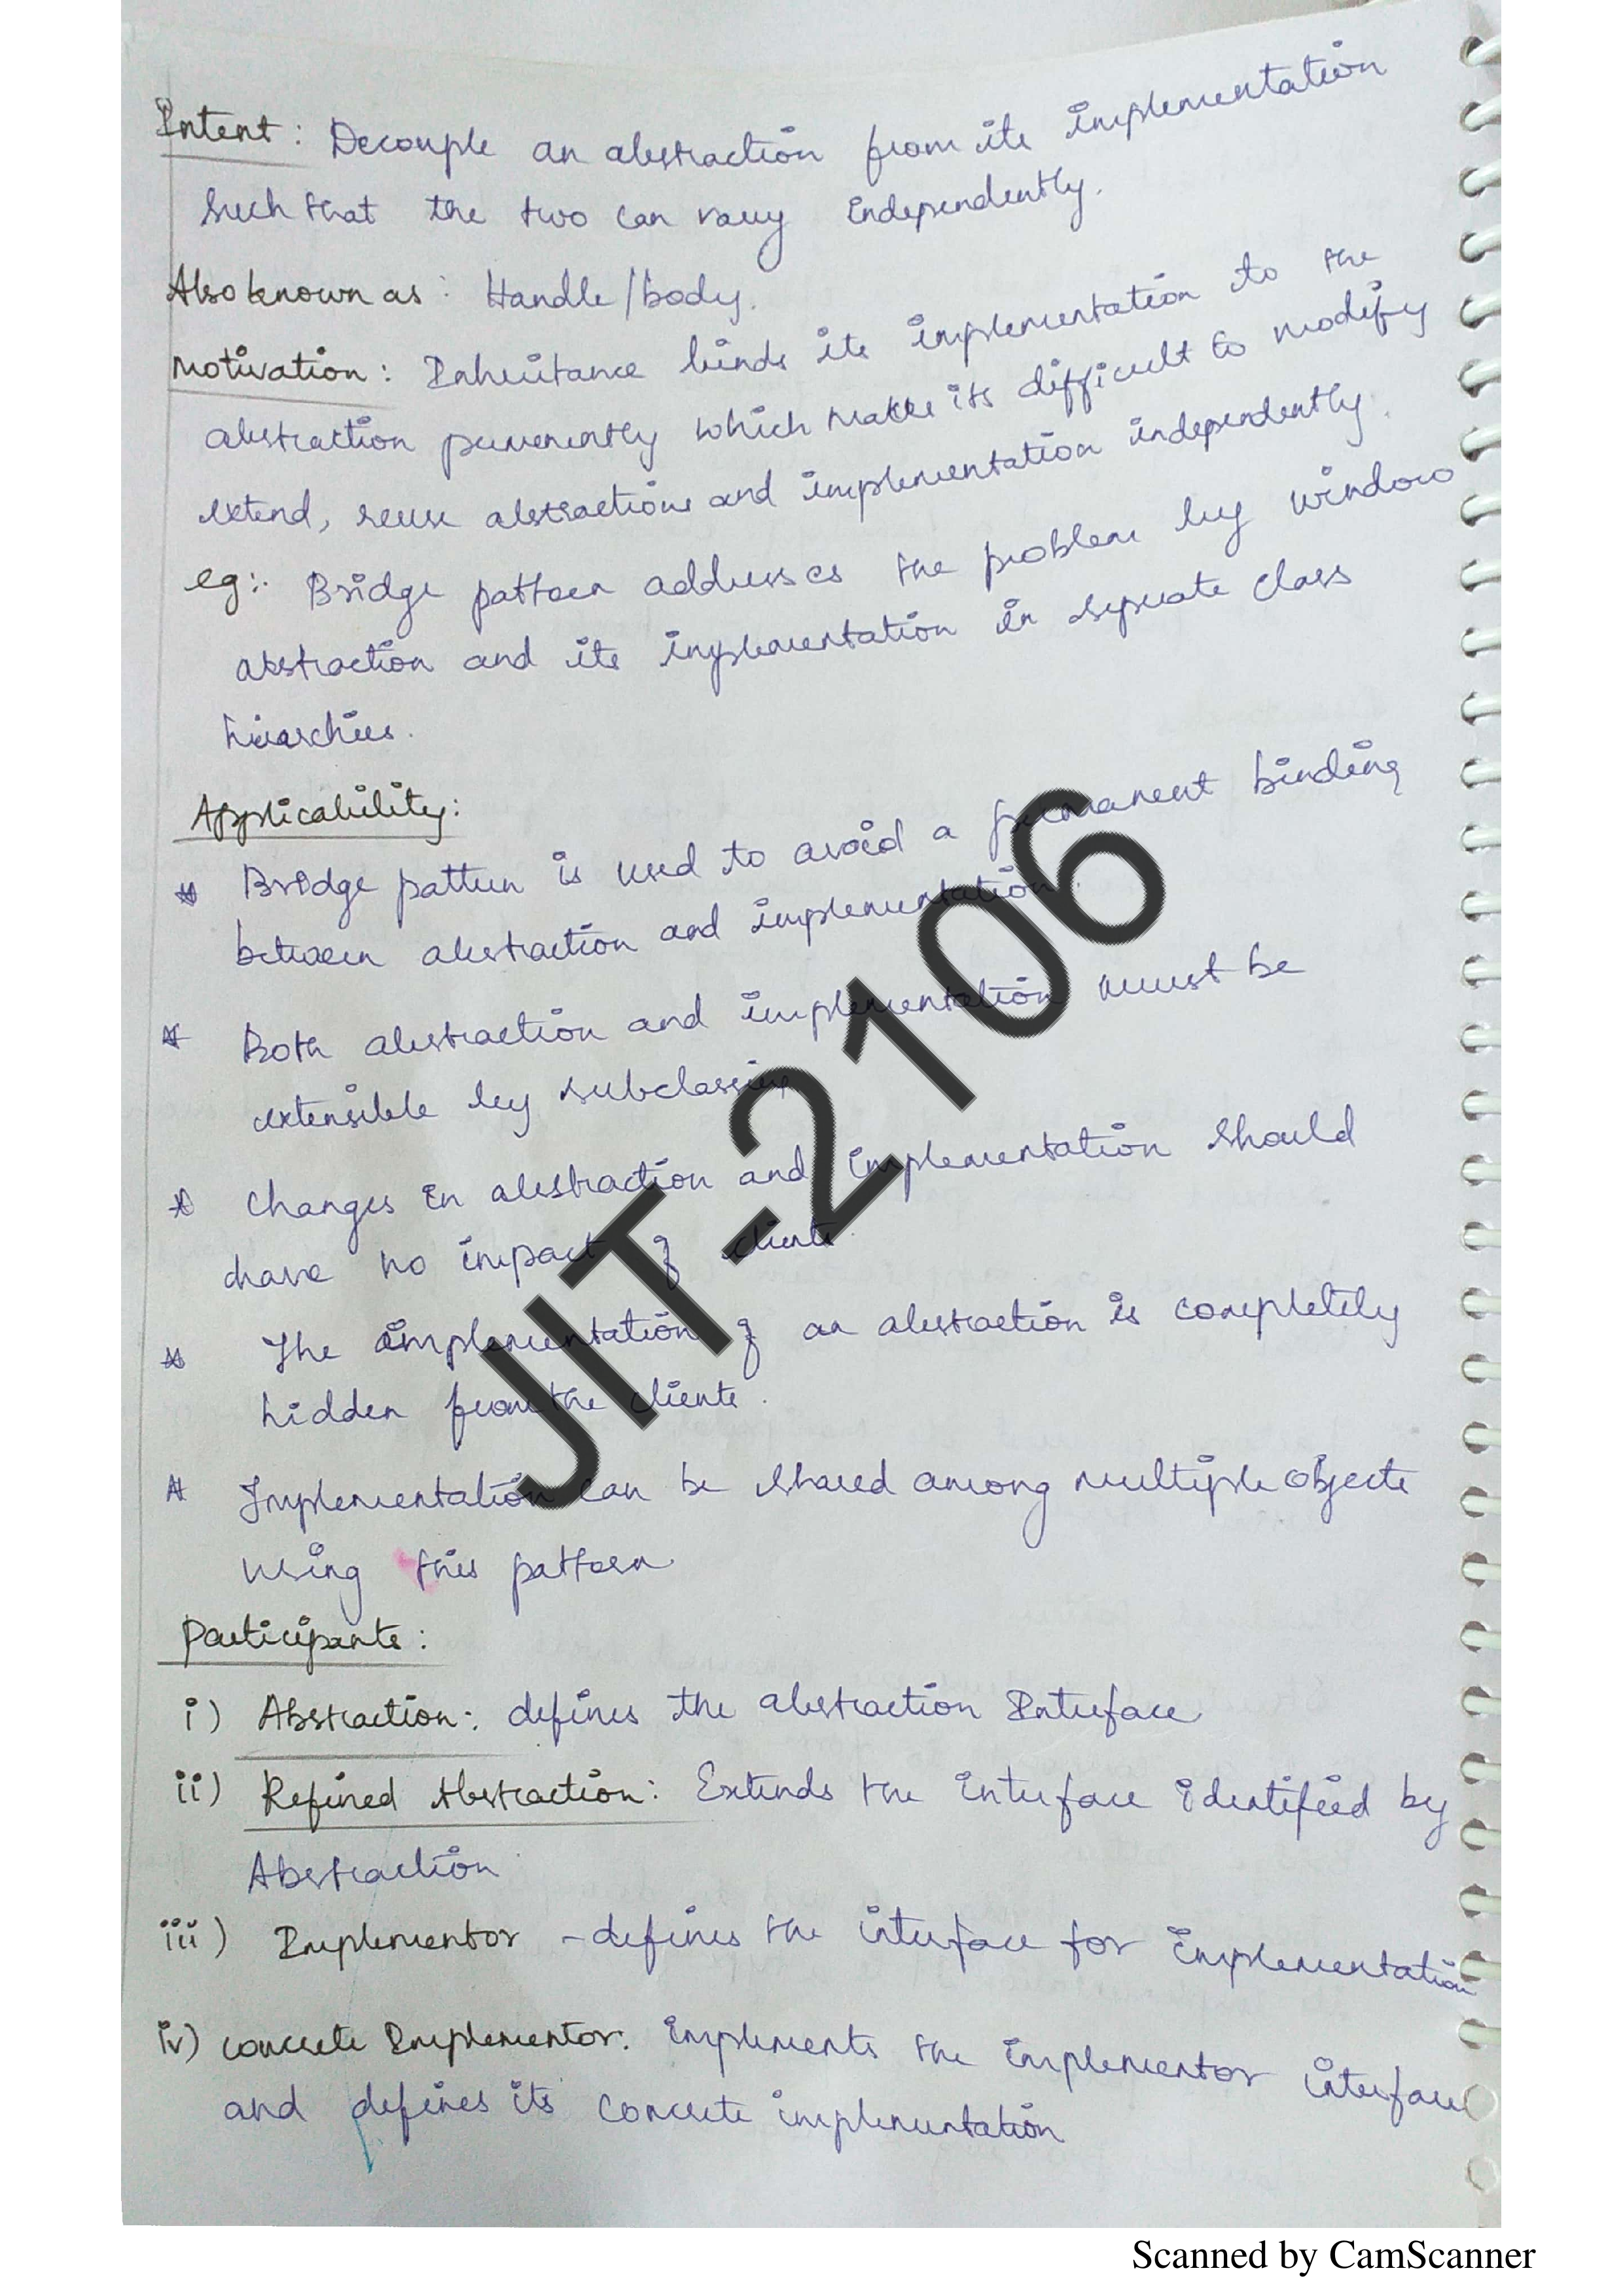 Intent: Decouple an abstraction from its implementation
such that the two can vary independently.
Also known as: Handle/body.
Motivation: Inheritance binds its implementation to the
abstraction permenently which makes its difficult to modify
extend, reuse abstractions and implementation independently.
eg:. Bridge pattern addresses the problem by window
abstraction and its implementation in seperate class
hierarchies.
Applicability:
* Bridge pattern is used to avoid a permanent binding
between abstraction and implementation.
* Both abstraction and implementation must be
extensible by subclassing
* Changes in abstraction and implementation should
have no impact of clients.
* The implementation of an abstraction is completely
hidden from the clients.
* Implementation can be shared among multiple objects
using this pattern
Participants:
i) Abstraction: defines the abstraction Interface
ii) Refined Abstraction: Extends the interface identified by
Abstraction
iii) Implementor - defines the interface for implementation
iv) concrete Implementor: implements the implementor interface
and defines its concrete implementation
JIT-2106
Scanned by CamScanner